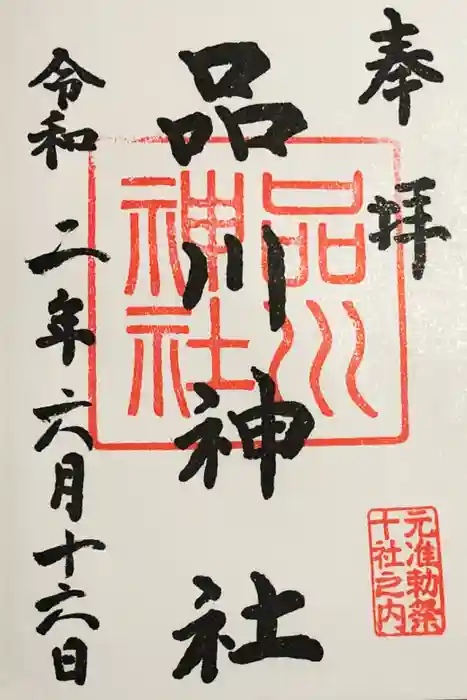 奉拝
品川神社
令和二年六月十六日
品川
神社
元准勅祭
十社之内